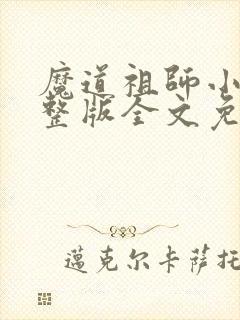 魔道祖師小
整版全文免
邁克尔卡萨托